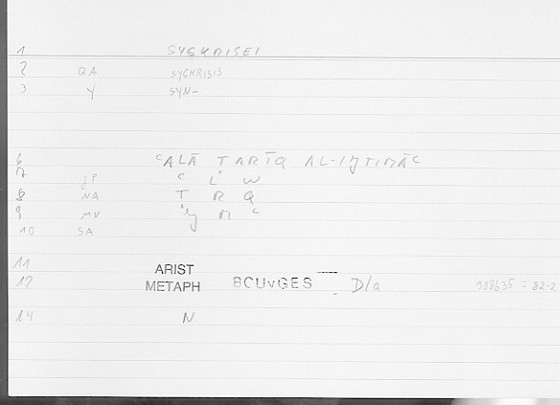 1 SYGKRISEI
2 QA SYGKRISIS
3 Y SYN-
6 ʿALĀ TARĪQ AL-IǦTIMĀʿ
7 JP ʿ L W
8 NA T R Q
9 MV ǧ M ʿ
10 SA
11 ARIST
12 METAPH BOUYGES D/a
14 N